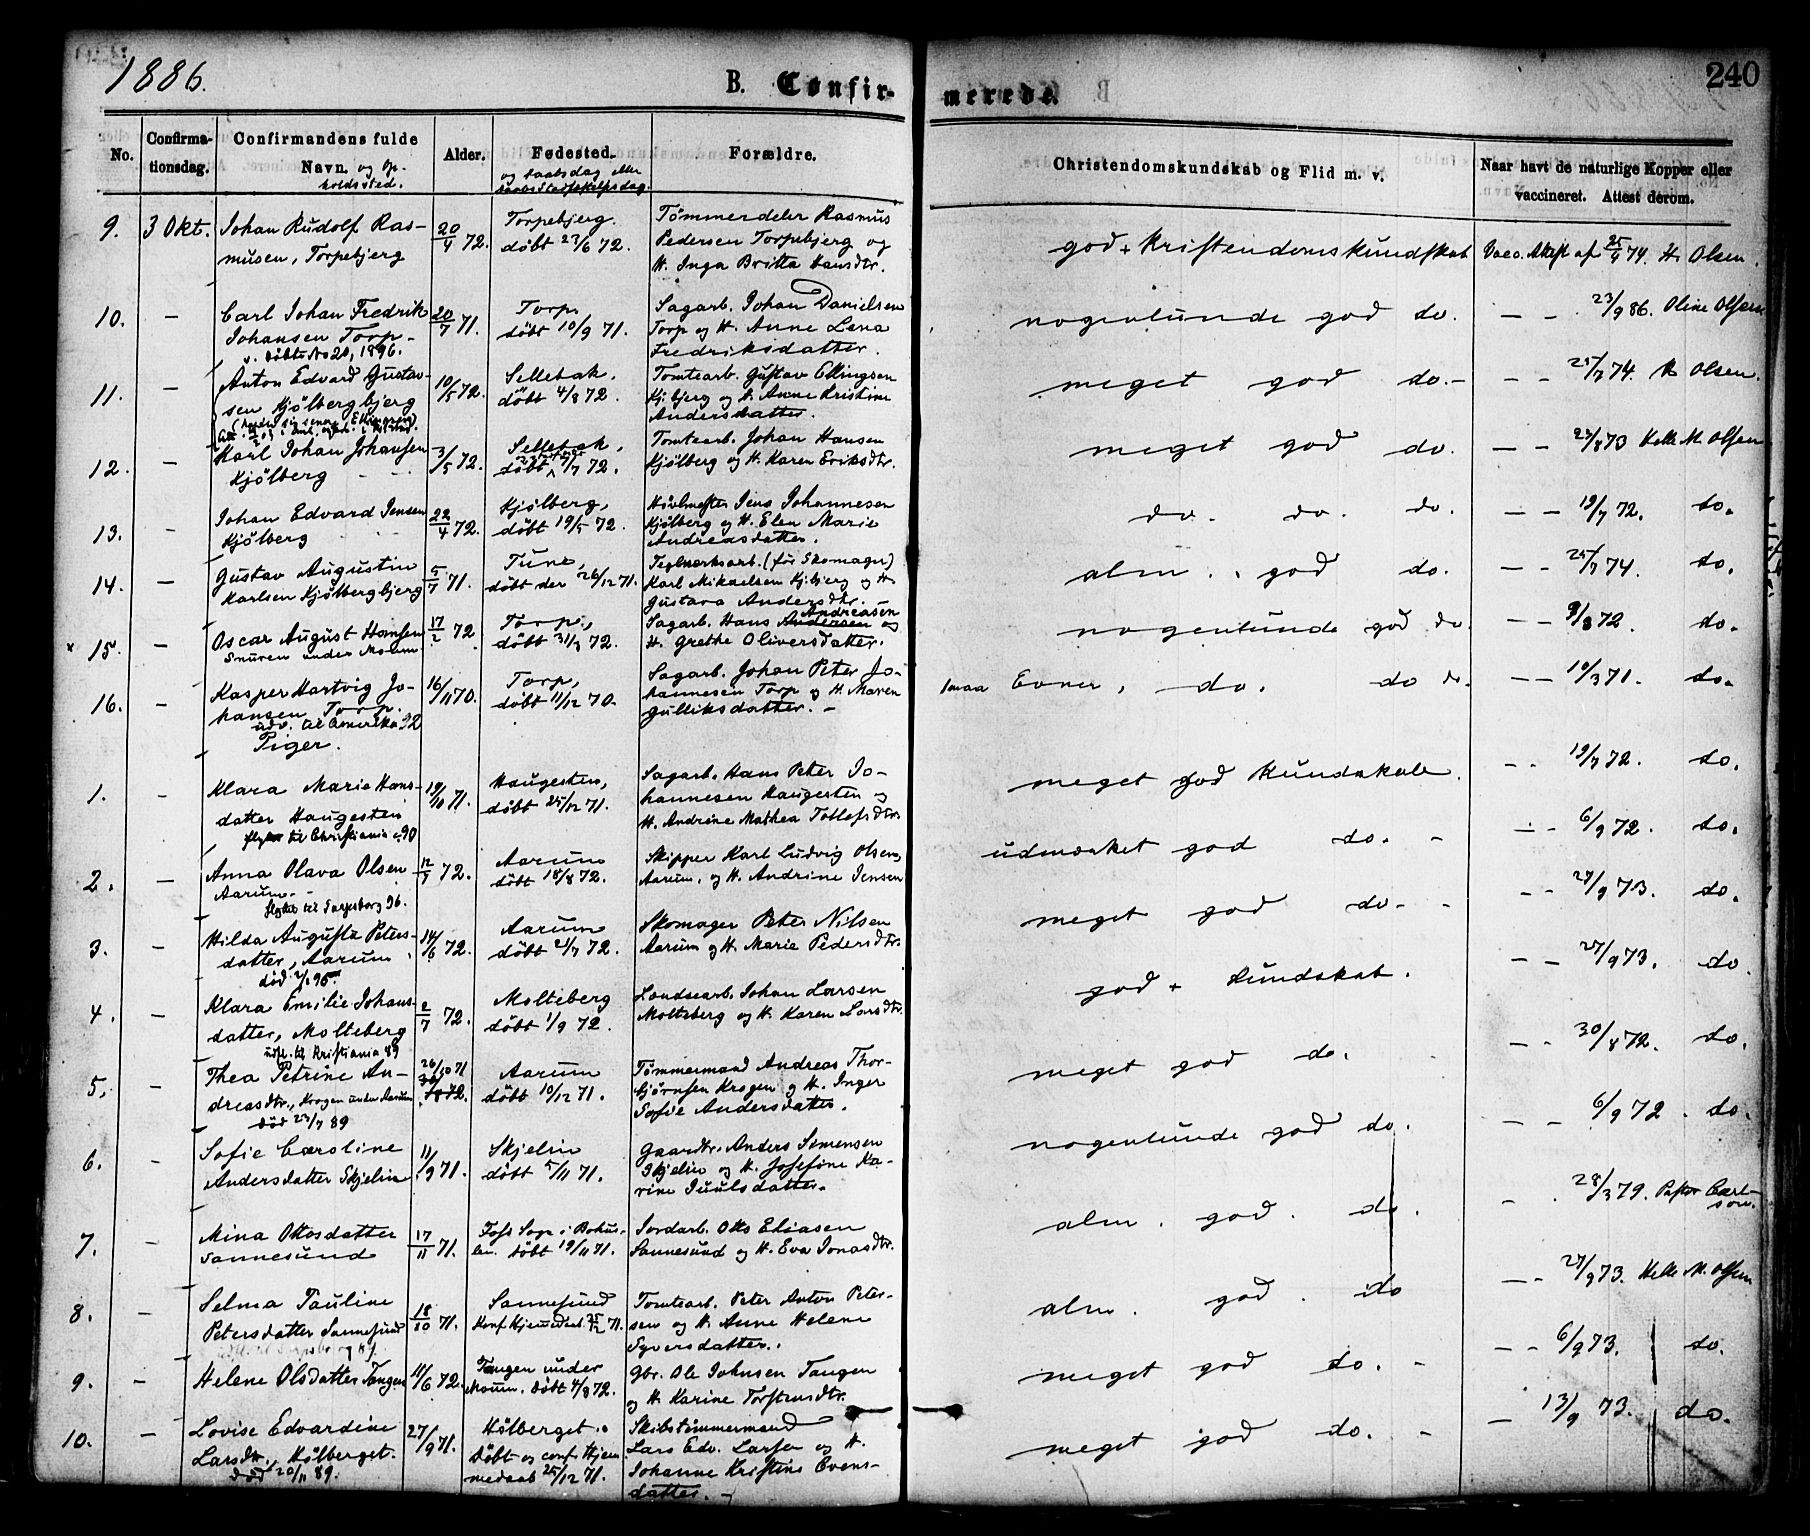 1886.
B. Confir-
merede.
240
No.
Confirma-
tionsdag.
Confirmandens fulde
Navn. og Op-
holdssted.
Alder.
Fødested.
og Daabsdag eller
Forældre.
Christendomskundskab og Flid m. v.
Naar havt de naturlige Kopper eller
vaccineret. Attest derom.
9. 3 Okt. Johan Rudolf Ras-
musen, Torpebjerg
20/4 72.
Torpebjerg.
døbt 23/6 72.
Tømmerdeler Rasmus
Pedersen Torpebjerg og
H. Inga Britta Hansdtr.
god + Kristendomskundskab
Vacc. Attest af 25/4 74. H. Olsen.
10. — Carl Johan Fredrik
Johansen Torp
v. Døbte No 20, 1896.
20/7 71.
Torp
døbt 10/9 71.
Sagarb. Johan Danielsen
Torp og H. Anne Lena
Fredriksdatter.
nogenlunde god do.
— — 23/9 86. Oline Olsen
11. — Anton Edvard Gustav-
sen Kjølbergbjerg
10/5 72.
Sellebak.
døbt 4/8 72.
Tomtearb. Gustav Ellingsen
Kj.bjerg og H. Anne Kristine
Andersdatter.
meget god do. -
— — 25/7 74. H. Olsen.
12. — Karl Johan Johansen
Kjølberg
3/5 72.
Sellebak,
døbt 7/7 72.
Tomtearb. Johan Hansen
Kjølberg og H. Karen Eriksdtr.
meget god do.
— — 27/8 73 Helle M. Olsen
13. Johan Edvard Jensen
Kjølberg
22/4 72.
Kjølberg,
døbt 19/5 72.
Høvlmester Jens Johannesen
Kjølberg og H. Elen Marie
Andreasdatter.
do. do. do.
— — 19/7 72. do.
14. — Gustav Augustin
Karlsen Kjølbergbjerg
5/7 71.
Tune,
døbt der 26/12 71.
Teglverksarb. (før Skomager)
Karl Mikaelsen Kj.bjerg og H.
Gustava Andersdtr.
alm. god do.
— — 25/7 74. do.
x 15. — Oscar August Hansen
Snuren under Moum
17/2 72
Torp,
døbt 31/3 72.
Andreasen
Sagarb. Hans Andersen og
H. Grethe Oliversdatter.
nogenlunde god do.
— — 9/8 72. do.
16. — Kasper Hartvig Jo-
hansen Torp.
udv. til Amerika 92
16/11 70.
Torp,
døbt 11/12 70.
Sagarb. Johan Peter Jo-
hannesen Torp og H. Maren
Gulliksdatter. -
smaa Evner, do. do do.
— — 10/3 71. do.
Piger.
1. — Klara Marie Hans-
datter Haugesten
flyttet til Christiania 90
19/10 71.
Haugesten,
døbt 25/12 71.
Sagarb. Hans Peter Jo-
hannesen Haugesten og
H. Andrine Mathea Tollefsdtr.
meget god Kundskab.
— — 19/7 72. do.
2. — Anna Olava Olsen
Aarum.
flyttet til Sarpsborg 96.
12/7 72.
Aarum
døbt 18/8 72.
Skipper Karl Ludvig Olsen,
Aarum, og H. Andrine Jensen
udmærket god do. -
— — 6/9 72. do.
3. — Hilda Augusta Peters-
datter, Aarum
14/6 72.
Aarum
døbt 21/7 72.
Skomager Peter Nilsen
Aarum og H. Marie Pedersdtr.
meget god do. -
— — 27/9 73. do.
4. — Klara Emilie Johans-
datter, Molteberg
udfl. til Kristiania 89
2/7 72.
Molteberg
døbt 1/9 72.
Landsearb. Johan Larsen
Molteberg og H. Karen Larsdtr.
god + Kundskab.
— — 27/9 73. do.
5. — Thea Petrine An-
dreasdtr., Krogen under Aarum
død 23/7 89
26/10 71
Aarum
døbt 10/12 71.
Tømmermand Andreas Thor-
bjørnsen Krogen og H. Inger
Sofie Andersdatter.
meget god do.
— — 30/8 72. do.
6. — Sofie Caroline
Andersdatter Skjelin
11/9 71.
Skjelin
døbt 5/11 71.
Gaardbr. Anders Simensen
Skjelin og H. Josefine Ka-
rine Juulsdatter.
nogenlunde god do.
— — 6/9 72. do.
7. — Mina Ottosdatter
Sannesund
17/11 71.
Foss Sogn i Bohus-
len. døbt 19/11 71.
Jordarb. Otto Eliasen
Sannesund og H. Eva Jonasdtr.
alm. god. do.
— 28/3 79. Pastor Carl-
son.
8. — Selma Pauline
Petersdatter Sannesund
18/10 71.
Sannesund
Konf. Hjemmedaab 25/12 71.
Tomtearb. Peter Anton Peter-
sen og H. Anne Helene
Syversdatter.
alm. god. do
— — 27/9 73. Helle M. Olsen
9. — Helene Olsdatter Tangen
11/6 72.
Tangen under
Moum. Døbt 4/8 72.
Gbr. Ole Johnsen Tangen
og H. Karine Torstensdtr.
meget god do. -
— — 6/9 73. do.
10. — Lovise Edvardine
Larsdtr., Hølberget.
død 20/11 89.
27/9 71.
Hølberget.
Døbt og conf. Hjem
medaab 25/12 71.
Skibstømmermand
Lars Edv. Larsen og H.
Johanne Kristine Evens-
datter. -
meget god do. -
— 13/9 73. do.